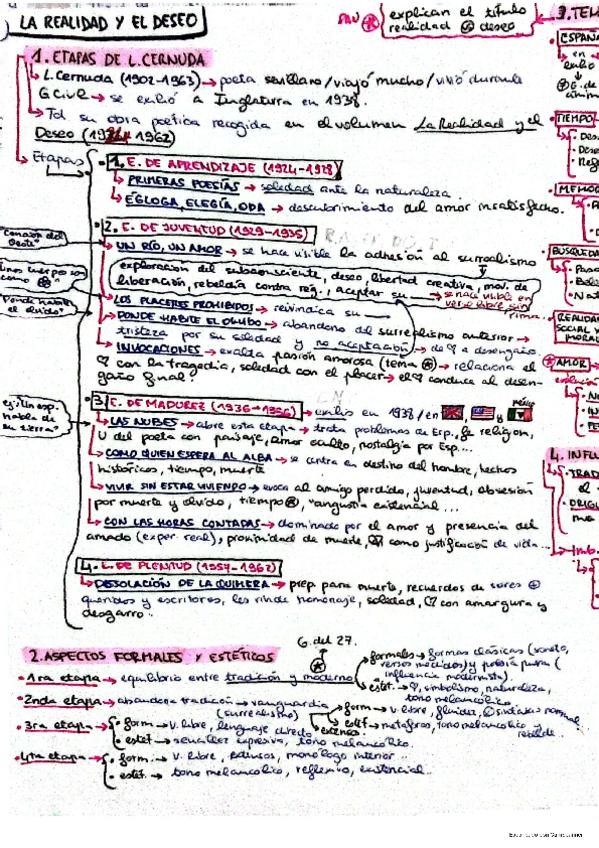 LA REALIDAD Y EL DESEO
explican el título
realidad deseo
3. TEM
1. ETAPAS DE L. CERNUDA
L. Cernuda (1902-1963) → poeta sevillano / viajó mucho / vivió durante
G. Civil → se exilió a Inglaterra en 1938.
Tod su obra poética recogida en el volumen La Realidad y el
Deseo ( 1962)
ESPAÑA
en
exilio
G. de
Etapas
1. E. DE APRENDIZAJE (1924-1928)
PRIMERAS POESÍAS → soledad ante la naturaleza.
ÉGLOGA, ELEGÍA, ODA → descubrimiento del amor insatisfecho.
TIEMPO
Des
Dese
MEMOR
2. E. DE JUVENTUD (1929-1935)
UN RÍO, UN AMOR → se hace visible la adhesión al surrealismo
exploración del subconsciente, deseo, libertad creativa, mov. de
liberación, rebeldía contra reg., aceptar su
se hace visible en
verso libre sin
rima.
"Donde habite
el olvido"
LOS PLACERES PROHIBIDOS → reivindica su
DONDE HABITE EL OLVIDO → abandono del surrealismo anterior →
tristeza por su soledad y no aceptación → de a desengaño.
INVOCACIONES → exalta pasión amorosa (tema → relaciona el
con la tragedia, soledad con el placer → el conduce al desen-
gaño final?
BÚSQUEDA
REALIDAD
SOCIAL Y
MORAL
AMOR
3. E. DE MADUREZ (1936-1956) → exilio en 1938 / en y
méxico
LAS NUBES → abre esta etapa → trata problemas de Esp., religion,
U del poeta con paisaje, amor oculto, nostalgia por Esp...
habla de
su tierra"
COMO QUIEN ESPERA AL ALBA → se centra en destino del hombre, hechos
históricos, tiempo, muerte
VIVIR SIN ESTAR VIVIENDO → evoca al amigo perdido, juventud, obsesión
por muerte y olvido, tiempo, "angustia existencial...
CON LAS HORAS CONTADAS → dominado por el amor y presencia del
amado (exper. real), proximidad de muerte, como justificación de vida...
4. INFLU
TRAD
el
ORIG
4. E. DE PLENITUD (1957-1962)
DESOLACIÓN DE LA QUIMERA → prep. para muerte, recuerdos de seres
queridos y escritores, les rinde homenaje, soledad, con amargura y
desgarro..
2. ASPECTOS FORMALES Y ESTÉTICOS
G. del 27.
1ra etapa → equilibrio entre tradición y moderno
formales → formas clásicas (soneto,
versos medidos) y poesía pura (
influencia modernista).
estét. → simbolismo, naturaleza,
tono melancólico.
2nda etapa → abandona tradición → vanguardia
(surrealismo)
form → v. libre, fluidez, sintaxis normal
estét → metáforas, tono melancólico y
rebelde..
3ra etapa → form → v. libre, lenguaje directo
estét → sencillez expresiva, tono melancólico.
4rta etapa → form. → v. libre, extensos, monólogo interior...
estét. → tono melancólico, reflexivo, existencial..